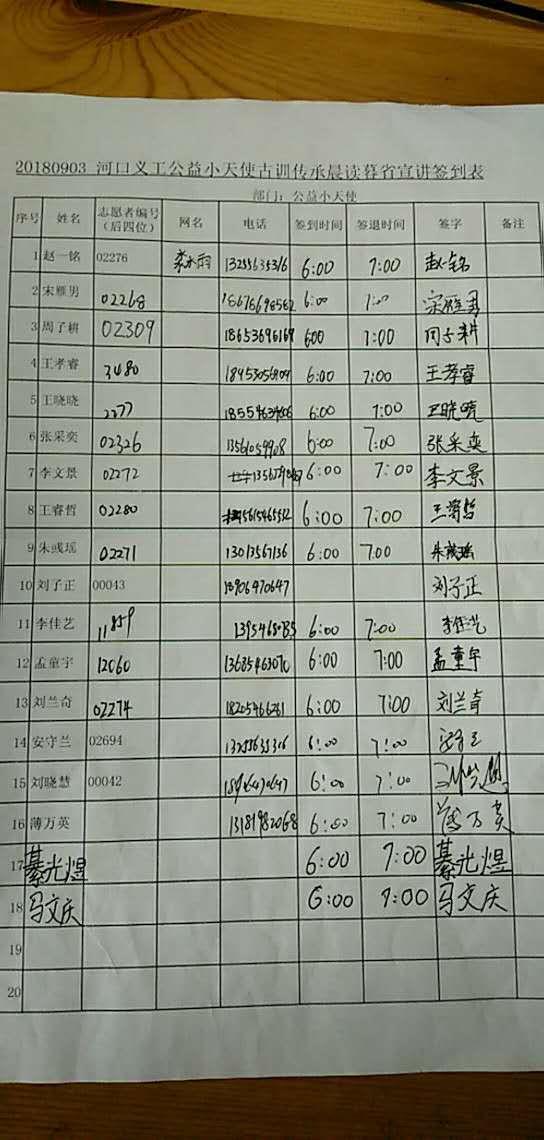 20180903 河口义工公益小天使古训传承晨读暮省宣讲签到表
部门：公益小天使
序号 姓名 志愿者编号（后四位） 网名 电话 签到时间 签退时间 签字 备注
1 赵一铭 02276 13255635316 6:00 7:00 赵一铭
2 宋雁男 02268 18678698582 6:00 7:00 宋雁男
3 周子耕 02309 18653696169 600 7:00 周子耕
4 王孝睿 3480 18453056909 6:00 7:00 王孝睿
5 王晓晓 2277 6:00 7:00 王晓晓
6 张采奕 02326 13561059908 6:00 7:00 张采奕
7 李文景 02272 6:00 7:00 李文景
8 王睿哲 02280 15615465512 6:00 7:00 王睿哲
9 朱彧瑶 02271 13013567136 6:00 7:00 朱彧瑶
10 刘子正 00043 18906470647 刘子正
11 李佳艺 11859 6:00 7:00 李佳艺
12 孟童宇 12060 13685463070 6:00 7:00 孟童宇
13 刘兰奇 02274 18205466281 6:00 7:00 刘兰奇
14 安守兰 02694 13255635316 6:00 7:00
15 刘晓慧 00042 6:00 7:00
16 薄万英 13181982068 6:00 7:00 薄万英
17 綦光煜 6:00 7:00 綦光煜
18 马文庆 6:00 7:00 马文庆
19
20